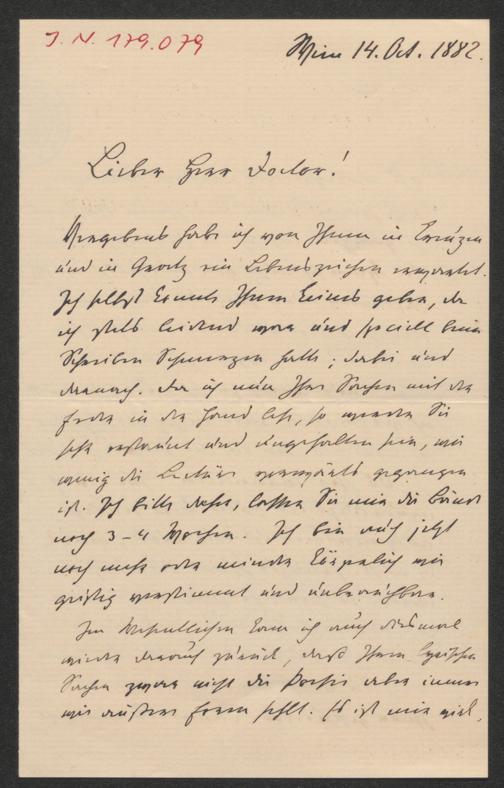 I. N. 179.079
Wien 14. Oct. 1882.
Lieber Herr Doctor!
Vergebens habe ich von Ihnen in
und in ein Lebenszeichen erwartet.
Ich selbst konnte Ihnen keines geben, da
ich stets leidend war und speciell beim
Schreiben Schmerzen hatte; dabei und
danach. Da ich nun Ihre Sachen mit der
Feder in der Hand lese, so werden Sie
sehr erstaunt und ungehalten sein, wie
wenig die Lectüre vorwärts gegangen
ist. Ich bitte daher, lassen Sie mir die Bände
noch 3-4 Wochen. Ich bin auch jetzt
noch mehr oder minder körperlich wie
geistig verstimmt und unbrauchbar.
Im Wesentlichen kam ich auch diesmal
wieder darauf zurück, daß Ihren lyrischen
Sachen zwar nicht die Poesie aber immer
wie äußere Form fehlt. Es ist mir viel,